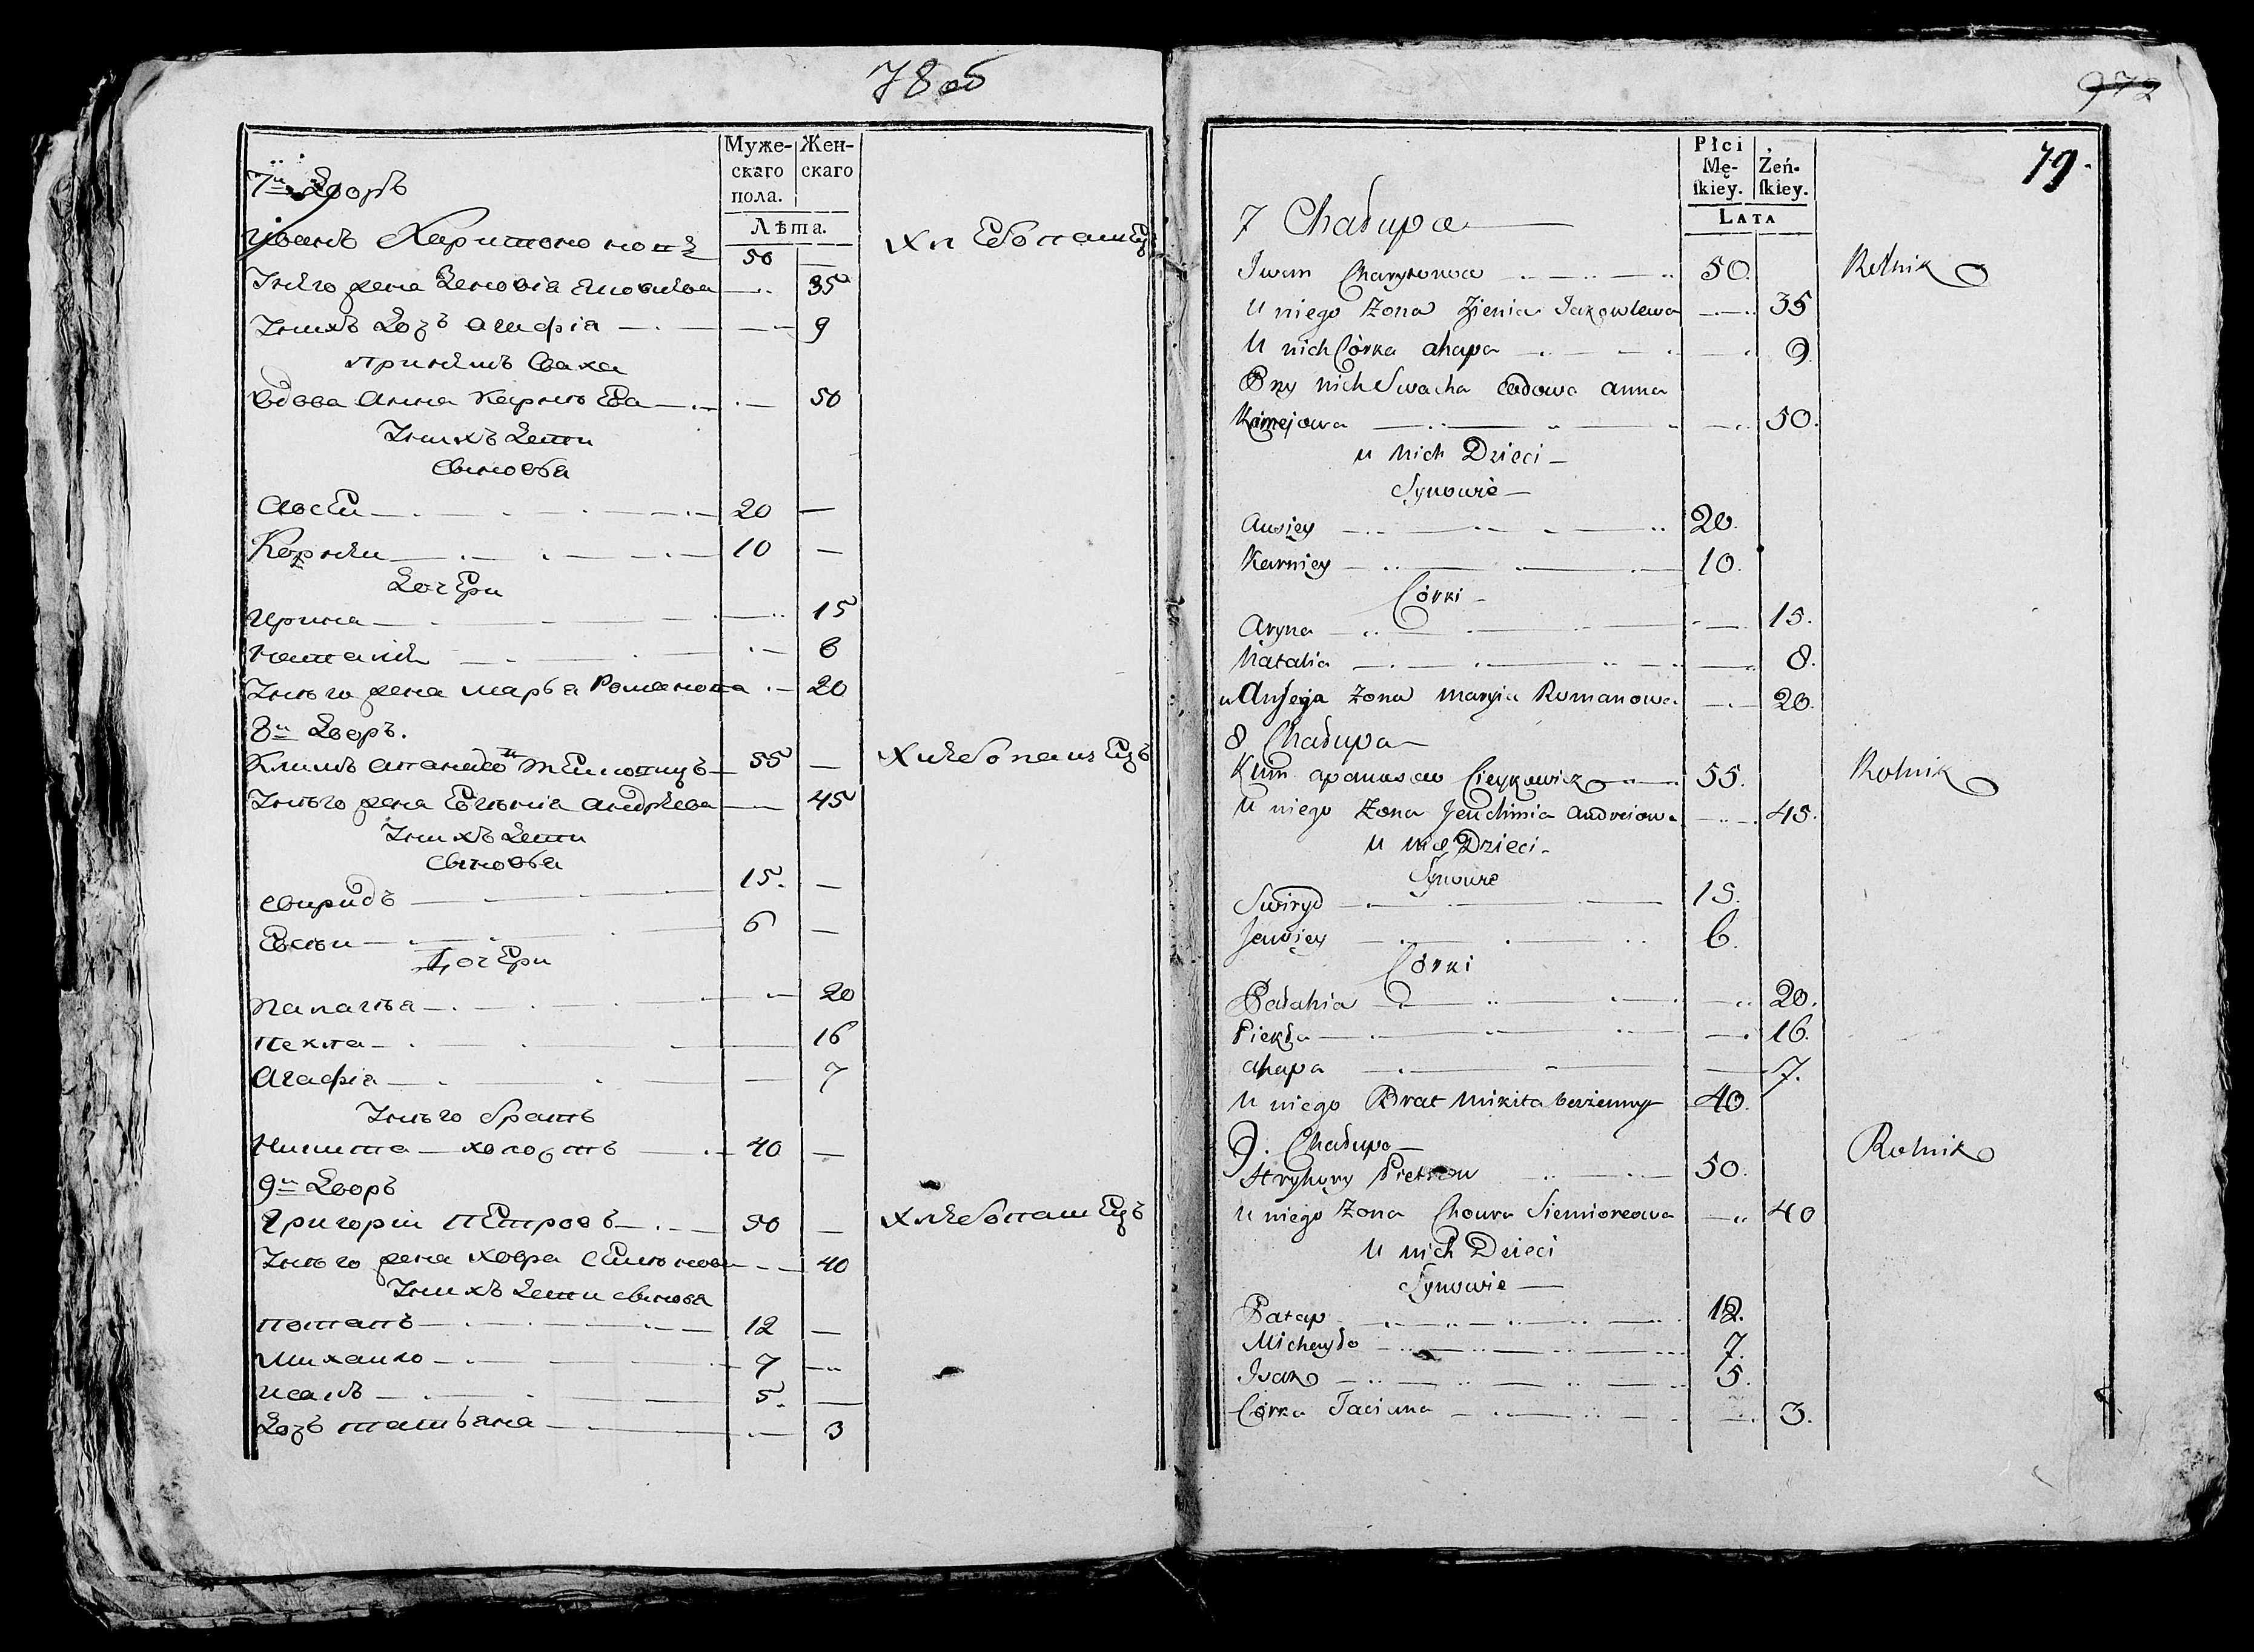 78 об
Муже-
скаго
пола.
Жен-
скаго
Лѣта.
7й Дворъ
Иванъ Харитоно 50 — хлебопашец
Унего жена Зеновіа 35
Унихъ дочъ агафіа 9
принихъ Сваха
вдова анна 50
Унихъ дети
сынов
Авсеи 20 —
Корнеи 10 —
Дочери
Ирина 15
Наталия
Унего жена марьа Романова 20
8й Дворъ.
Климъ 55 — хлебопашецъ
Унего жена андреева 45
Унихъ дети
сынов
свиридъ 15. —
Евсеи 6 —
Дочери
палагеа 20
16
Агафіа 7
Унего братъ
Никита холостъ 40 —
9й Дворъ
Григории петровъ 50 — хлебопашецъ
Унего жена ховра 40
Унихъ дети сынов
потапъ 12 —
михаило 7
исакъ 5. —
Дочъ татьяна 3
972
79.
Płci
Mę-
ſkiey.
Żeń-
ſkiey.
Lata
7 Chałupa
Iwan Charytonow 50. Rolnik
U niego żona Zienia Jakowlewa 35
U nich Córka ahapa 9.
Przy nich Swacha wdowa anna
50.
u nich Dzieci
Synowie
Ausiey 20.
Karniey 10.
Córki
Aryna 15.
Natalia 8.
u Auſeja żona maryia Romanowa 20.
8 Chałupa
Klim apanasow 55. Rolnik
U niego żona Jeuchimia Andreiowa 45.
u Dzieci
Synowie
Swiryd 15.
Jewsiey 6.
Córki
Pałahia 20.
Piekła 16.
ahapa 7.
U niego Brat Mikita bezżenny 40.
9. Chałupa
Hryhory Pietrow 50. Rolnik
U niego żona Chowra 40
U nich Dzieci
Synowie
Patap 12.
Michayło 7.
Isak 5.
Córka Taciana 3.